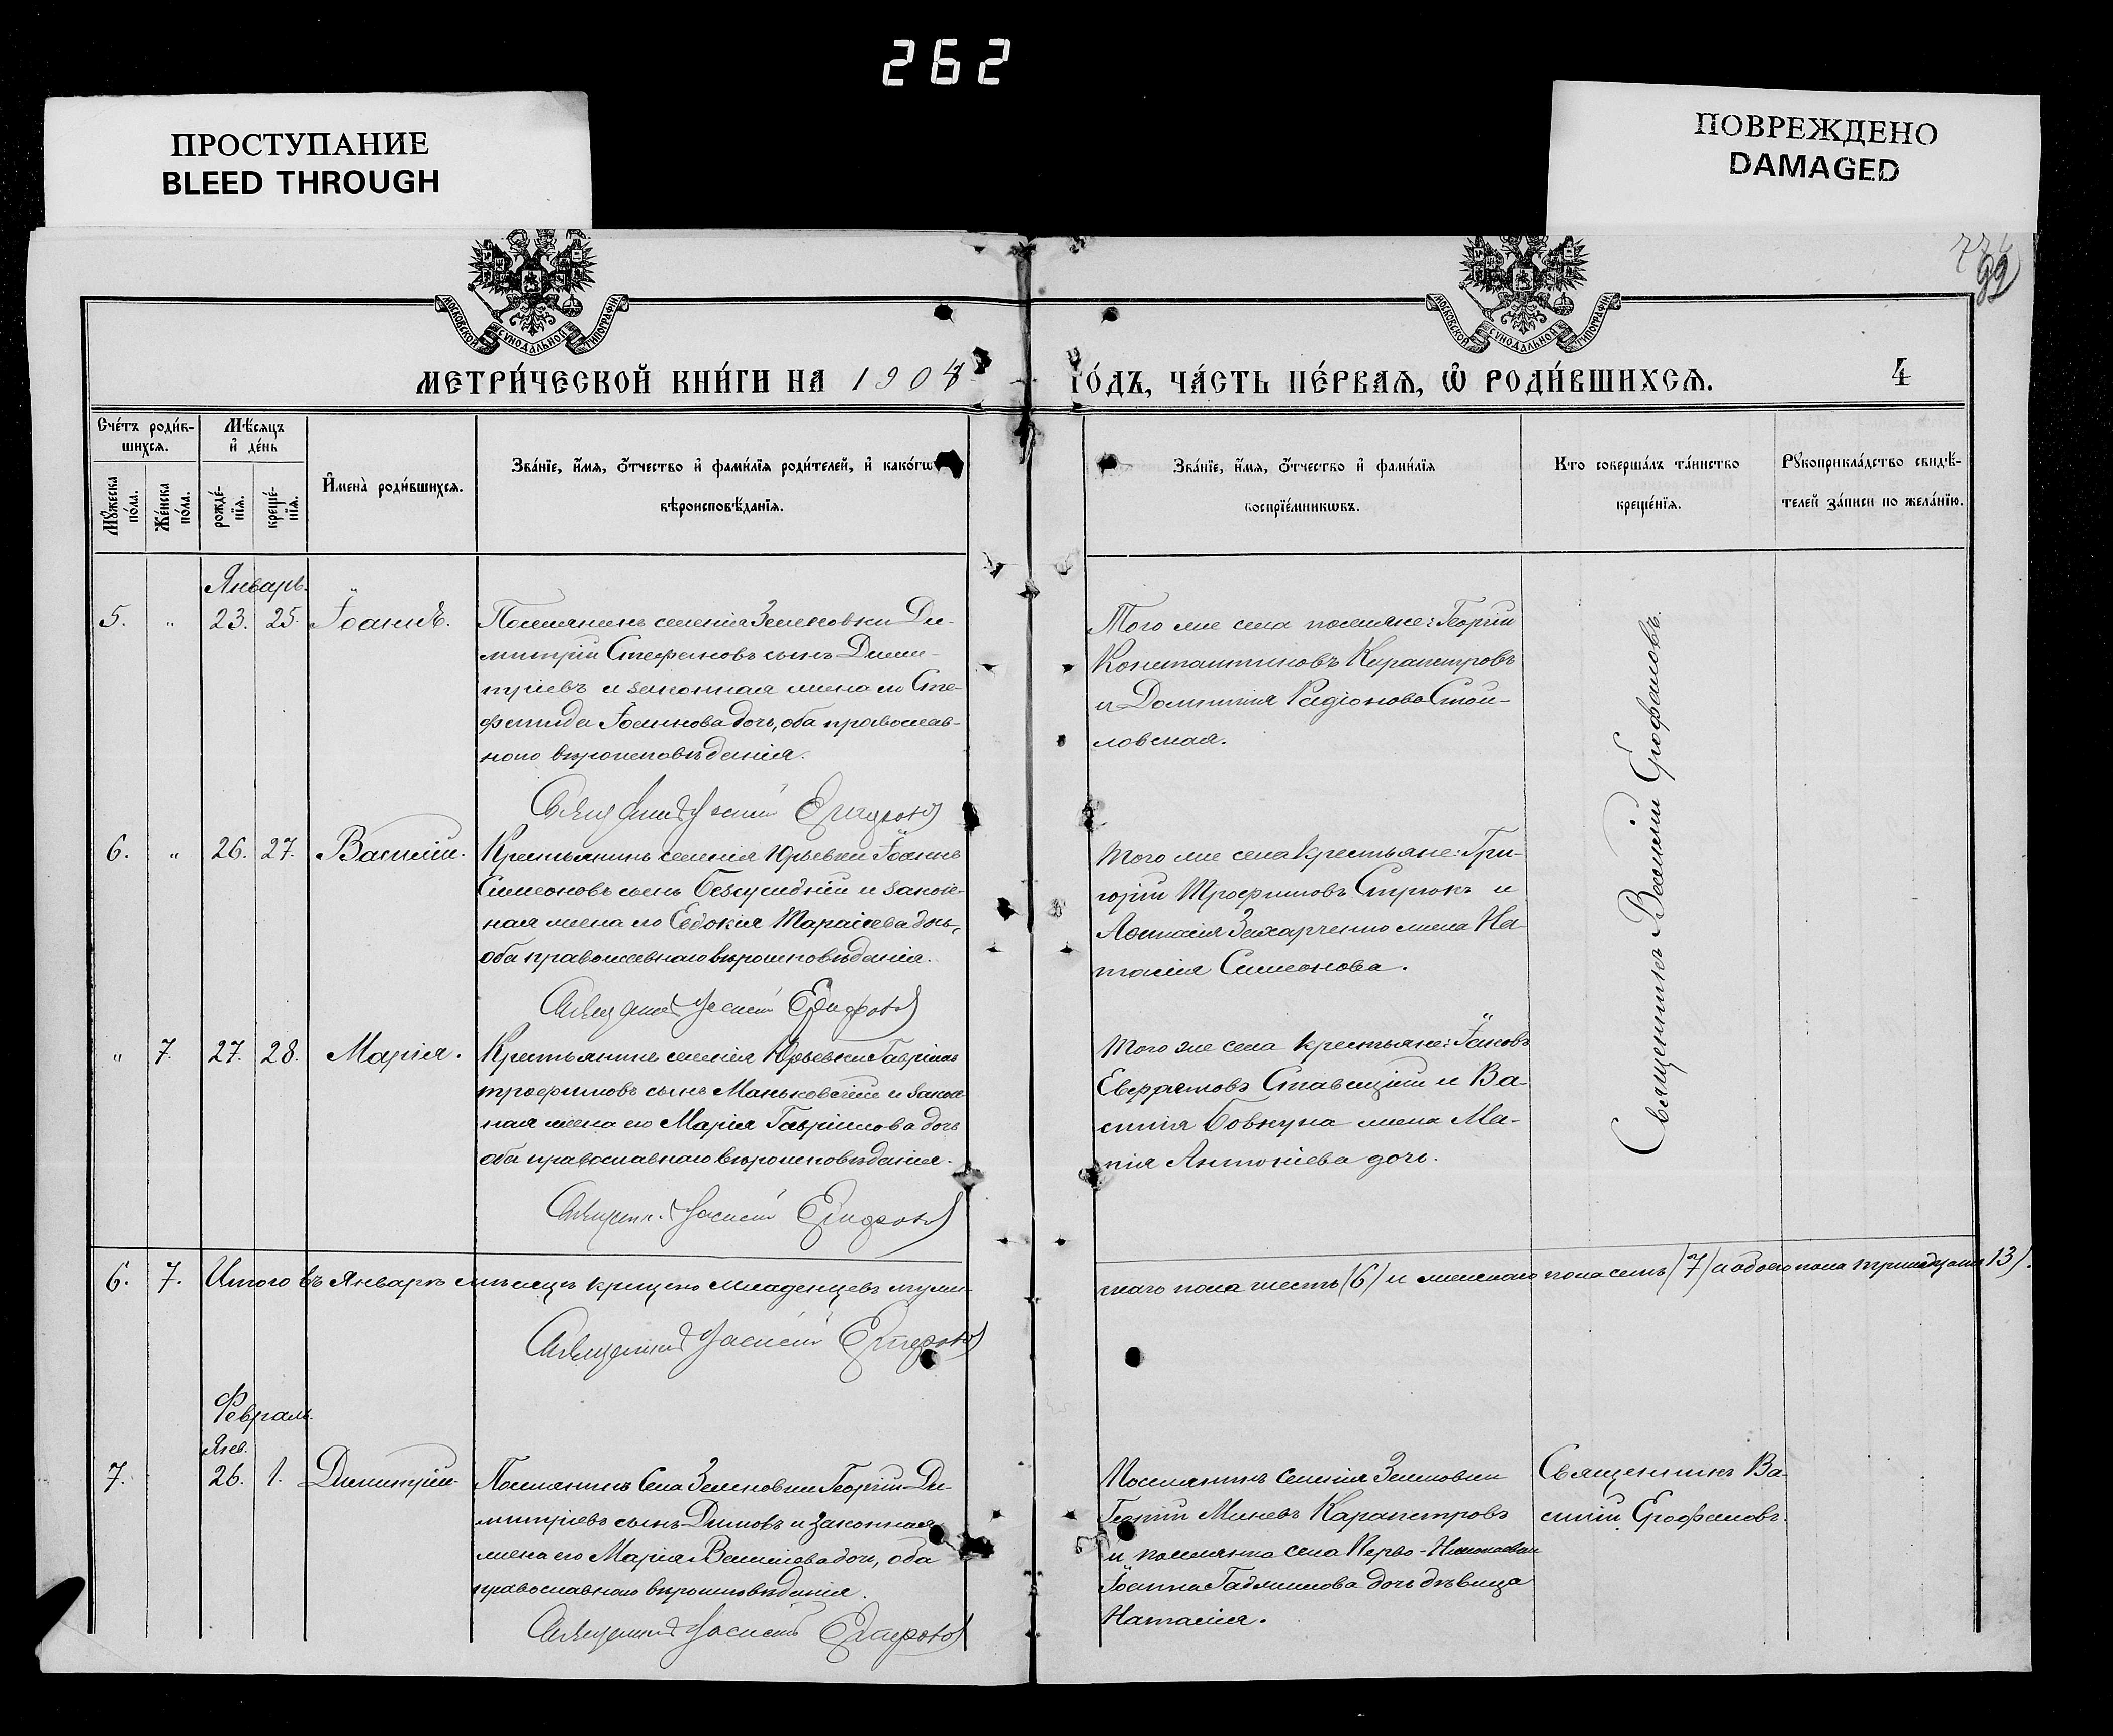 262
ПРОСТУПАНИЕ
BLEED THROUGH
ПОВРЕЖДЕНО
DAMAGED
99
МОСКОВСКОЙ СУНОДАЛЬНОЙ ТИПОГРАФІИ
МОСКОВСКОЙ СУНОДАЛЬНОЙ ТИПОГРАФІИ
МЕТРИ́ЧЕСКОЙ КНИ́ГИ НА 1908
ГО́ДЪ, ЧА́СТЬ ПЕ́РВАѦ, Ѽ РОДИ́ВШИХСѦ.
4
Сче́тъ роди́в-
шихсѧ.
Мꙋ́жеска по́ла.
Же́нска по́ла.
Мѣ́сѧцъ
и҆ де́нь
рожде́-
нїѧ.
креще́-
нїѧ.
И҆мена̀ роди́вшихсѧ.
Зва́нїе, и҆́мѧ, ѻ҆́тчество и҆ фами́лїѧ роди́телей, и҆ како́гѡ
вѣроисповѣ́данїѧ.
Зва́нїе, и҆́мѧ, ѻ҆́тчество и҆ фами́лїѧ
воспрїе́мникѡвъ.
Кто соверша́лъ та́инство
креще́нїѧ.
Рꙋкоприкла́дство свидѣ́-
телей за́писи по жела́нїю.
Январь.
5. " 23. 25. Іоаннъ.
Поселянинъ селенія Зеленовки Ди-
митрій Стефановъ сынъ Дими-
тріевъ и законная жена его Сте-
фанида Іоаннова дочь, оба православ-
ного вѣроисповѣданія.
Того же села поселяне: Георгій
Константиновъ Карапетровъ
и Домникія Радіонова Стои-
ловская.
Священникъ Василій Ерофаловъ.
6. " 26. 27. Василій.
Крестьянинъ селенія Юрьевки Іоаннъ
Симеоновъ сынъ и закон-
ная жена его Евдокія Тарасіева дочь,
оба православнаго вѣроисповѣданія.
Того же села крестьяне: Гри-
горій Трофимовъ Стрюкъ и
Захарченко жена На-
талія Симеонова.
" 7. 27. 28. Марія.
Крестьянинъ селенія Юрьевки Гавріилъ
Трофимовъ сынъ Маньковскій и закон-
ная жена его Марія Гавріилова дочь
оба православнаго вѣроисповѣданія.
Того же села крестьяне: Іаковъ
Ставицкій и Ва-
силія Бовкуна жена Ма-
рія Антоніева дочь.
6. 7. Итого въ Январѣ мѣсяцѣ крещено младенцевъ муже-
скаго пола шесть (6) и женскаго пола семь (7) и обоего пола тринадцать 13).
Февраль.
Янв.
7. 26. 1. Димитрій.
Поселянинъ села Зеленовки Георгій Ди-
митріевъ сынъ Димовъ и законная
жена его Марія Василіева дочь, оба
православнаго вѣроисповѣданія.
Поселянинъ селенія Зеленовки
Георгій Миневъ Карапетровъ
и поселянка села Перво-Николаевки
Іоанна дочь дѣвица
Наталія.
Священникъ Ва-
силій Ерофаловъ.